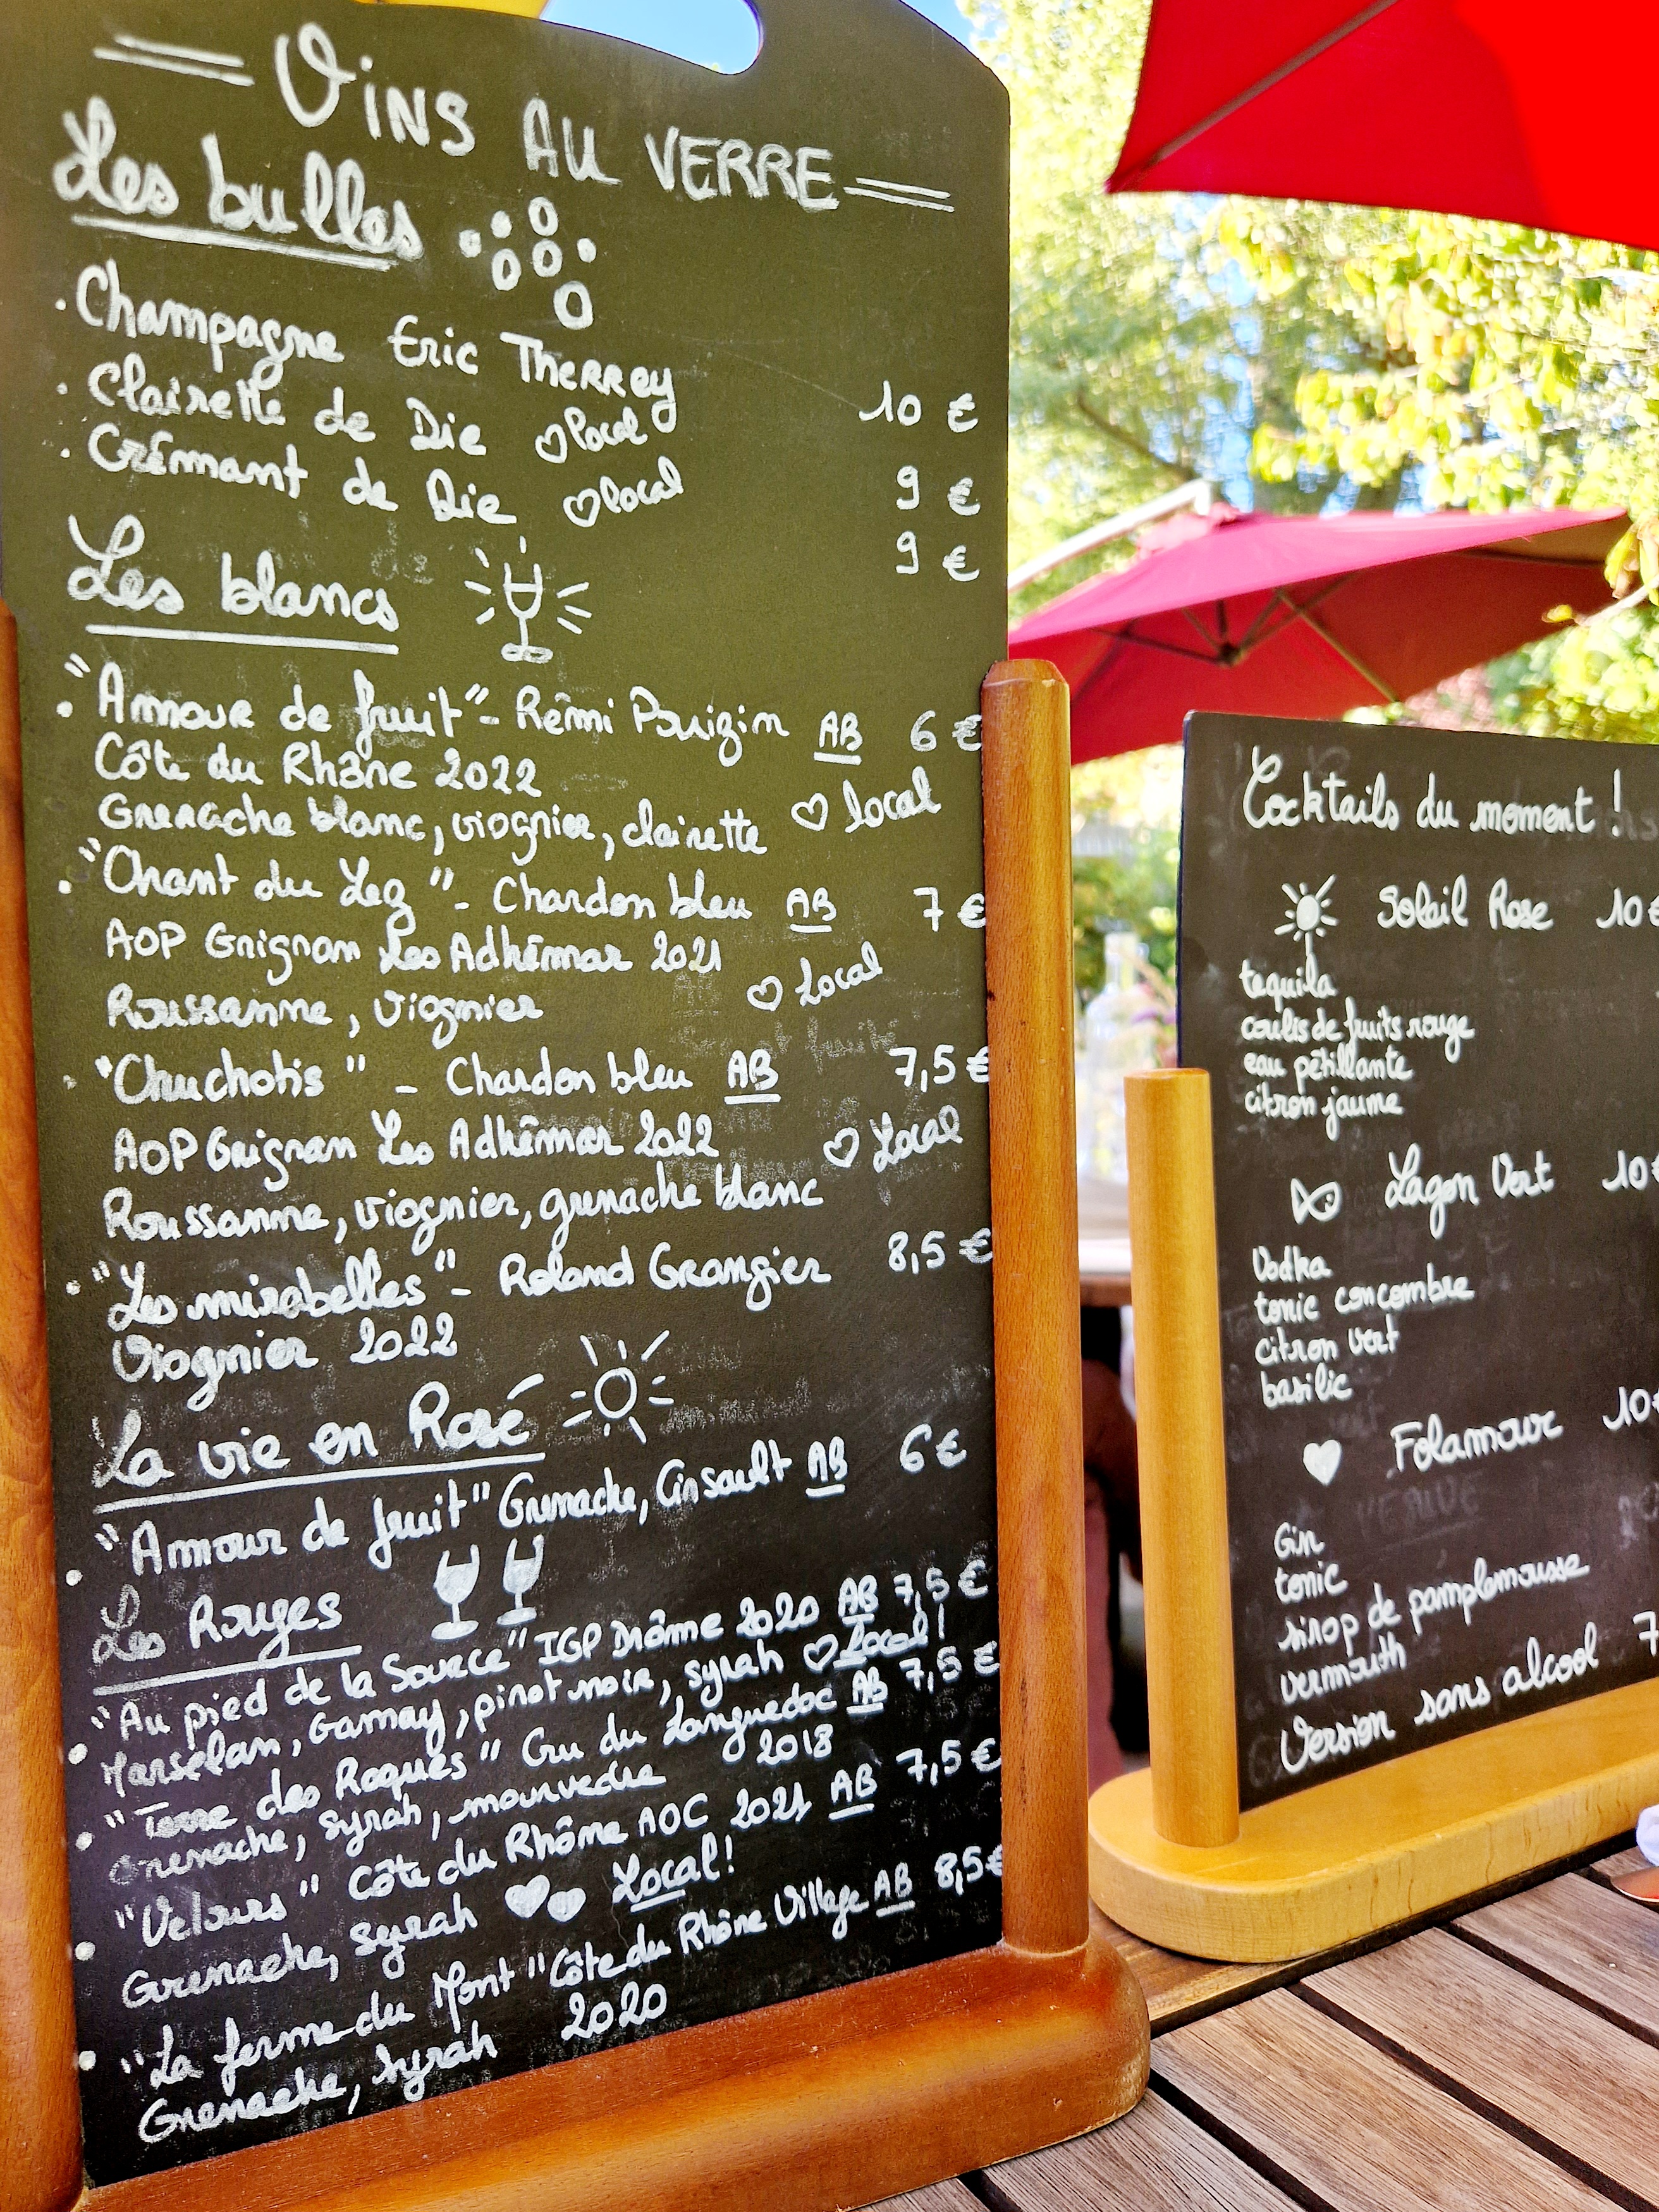 Vins au verre
Les bulles
· Champagne Eric Therrey 10 €
· Clairette de Die local 9 €
· Crémant de Die local 9 €
Les blancs
· "Amour de fruit" - Rémi Pouizin AB 6 €
Côte du Rhône 2022
Grenache blanc, viognier, clairette local
· "Chant du Lez" - Chardon bleu AB 7 €
AOP Grignan Les Adhémar 2021
Roussanne, viognier Local
· "Chuchotis" - Chardon bleu AB 7,5 €
AOP Grignan Les Adhémar 2022 Local
Roussanne, viognier, grenache blanc
· "Les mirabelles" - Roland Grangier 8,5 €
Viognier 2022
La vie en Rosé
· "Amour de fruit" Grenache, Cinsault AB 6 €
Les Rouges
· "Au pied de la Source" IGP Drôme 2020 AB 7,5 €
Marselan, Gamay, pinot noir, syrah Local!
· "Terre des Roques" Cru du Languedoc AB 7,5 €
Grenache, syrah, mourvedre 2018
· "Velours" Côte du Rhône AOC 2021 AB 7,5 €
Grenache, syrah Local!
· "La ferme du Mont" Côte du Rhône Village AB 8,5 €
Grenache, syrah 2020
Cocktails du moment !
Soleil Rose 10 €
tequila
coulis de fruits rouge
eau pétillante
citron jaune
Lagon Vert 10 €
Vodka
tonic concombre
citron vert
basilic
Folamour 10 €
Gin
tonic
sirop de pamplemousse
vermouth
Version sans alcool 7